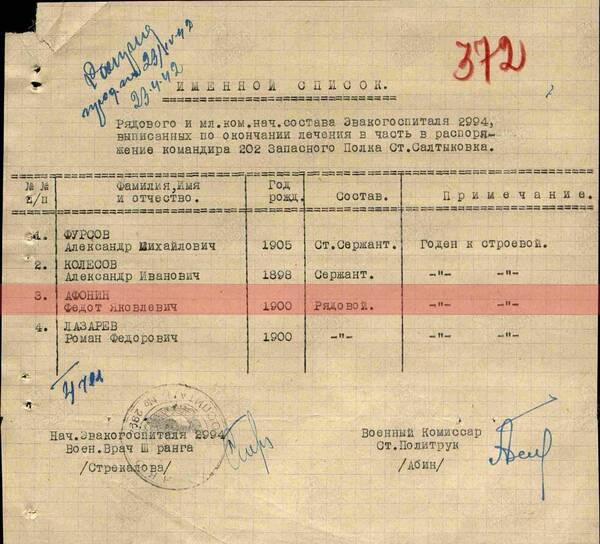 372
23.4.42
ИМЕННОЙ СПИСОК.
Рядового и мл.ком.нач.состава Эвакогоспиталя 2994,
выписанных по окончании лечения в часть в распоря-
жение командира 202 Запасного Полка Ст.Салтыковка.
№№ п/п Фамилия,Имя и отчество. Год рожд. Состав. Примечание.
1. ФУРСОВ
Александр Михайлович 1905 Ст.Сержант. Годен к строевой.
2. КОЛЕСОВ
Александр Иванович 1898 Сержант. -"- -"-
3. АФОНИН
Федот Яковлевич 1900 Рядовой. -"- -"-
4. ЛАЗАРЕВ
Роман Федорович 1900 -"- -"- -"-
Нач.Эвакогоспиталя 2994
Воен.Врач Ш ранга
/Стрекалова/
Военный Комиссар
Ст.Политрук
/Абин/